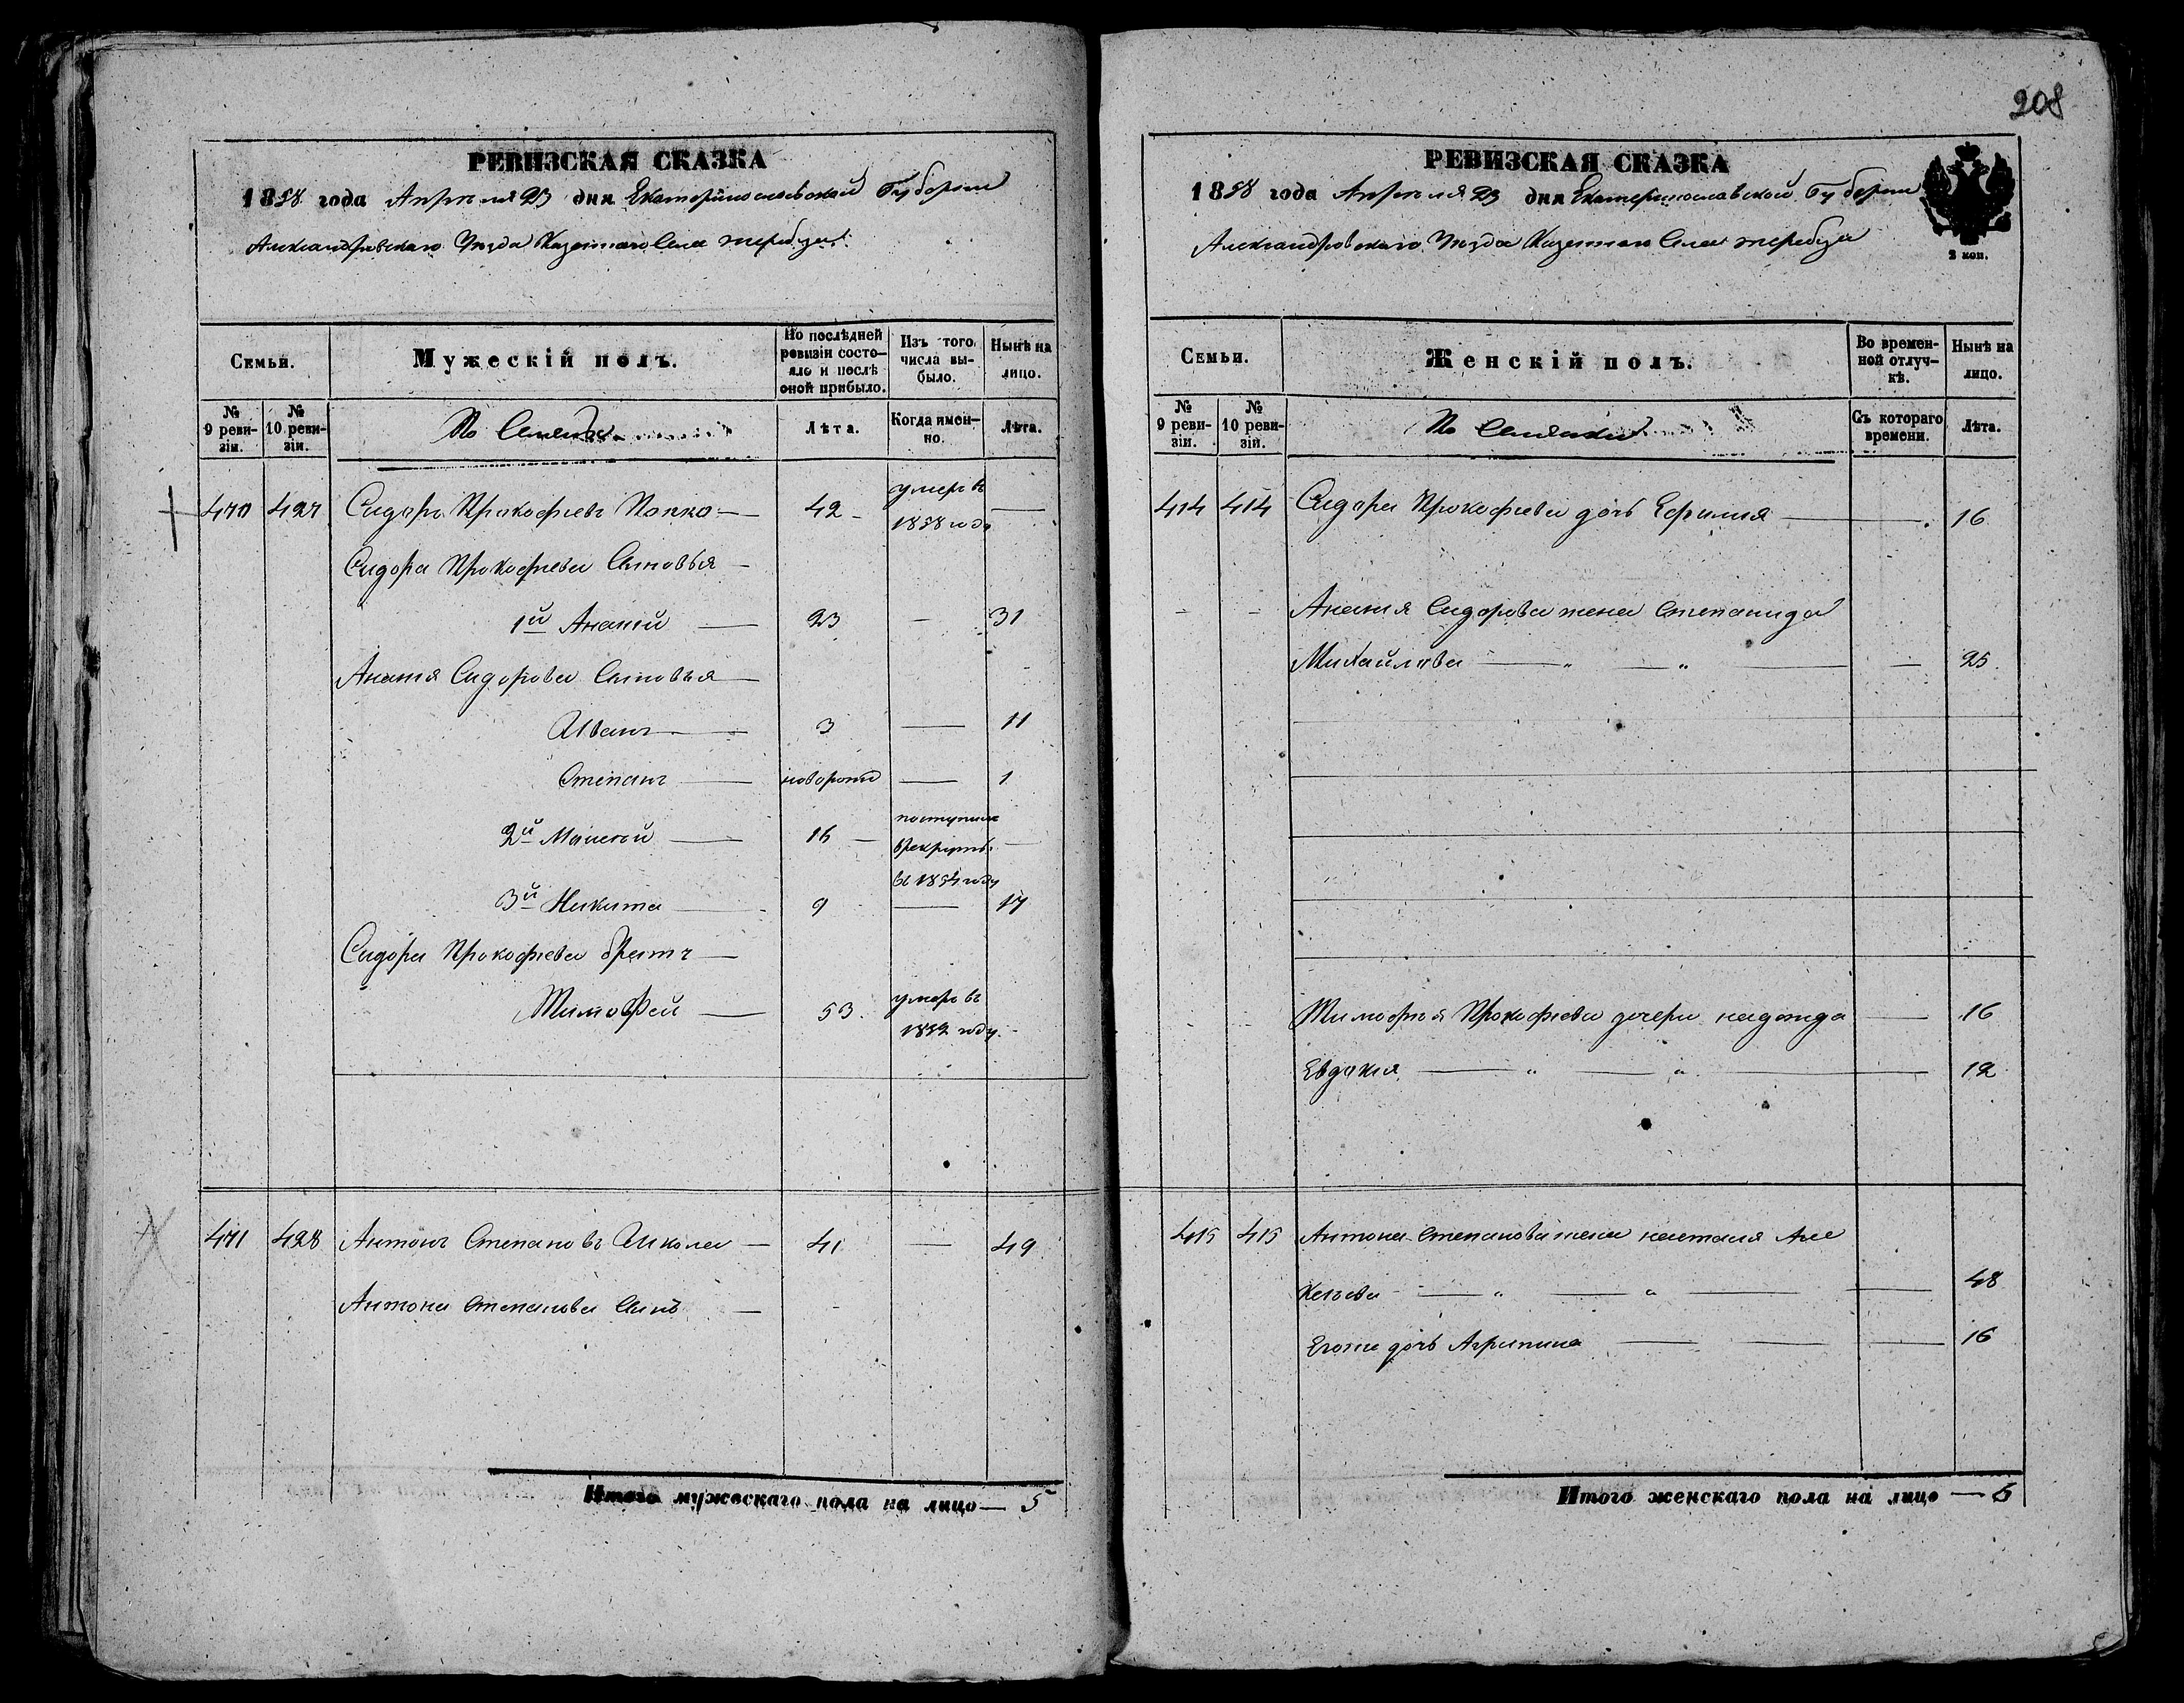 208
РЕВИЗСКАЯ СКАЗКА
1858 года Апреля 23 дня Екатеринославской Губернии
Александровскаго Уезда Казеннаго Села Жеребца
Семьи.
Мужескій полъ.
По послѣдней ревизіи состояло и послѣ оной прибыло.
Изъ того числа выбыло.
Нынѣ на лицо.
№ 9 ревизіи.
№ 10 ревизіи.
Лѣта.
Когда именно.
Лѣта.
470 427 Сидоръ Прокофіевъ Попко — 42 — умеръ въ 1858 году —
Сидора Прокофіева Сыновья —
1й Ананій — 23 — 31
Ананія Сидорова Сыновья —
Иванъ — 3 — 11
Степанъ — новорожд — 1
2й Моисей — 16 — поступилъ врекруты въ 1854 году —
3й Никита — 9 — 17
Сидора Прокофіева братъ —
Тимофей — 53 умеръ въ 1852 году —
471 428 Антонъ Степановъ — 41 — 49
Антона Степанова Сынъ —
Итого мужескаго пола на лицо — 5
РЕВИЗСКАЯ СКАЗКА
1858 года Апреля 23 дня Екатеринославской Губернии
Александровскаго Уезда Казеннаго Села Жеребца
2 коп.
Семьи.
Женскій полъ.
Во временной отлучкѣ.
Нынѣ на лицо.
№ 9 ревизіи.
№ 10 ревизіи.
Съ котораго времени.
Лѣта.
414 414 Сидора Прокофіева дочь Ефимия — 16
Анания Сидорова жена Степанида
Михайлова — " — " — 25
Тимофея Прокофіева дочери надежда — 16
Евдокия — " — " — 12
415 415 Антона Степанова жена наталя Але
ксѣева — " — " — 48
Егоже дочь Агрипина — 16
Итого женскаго пола на лицо — 6